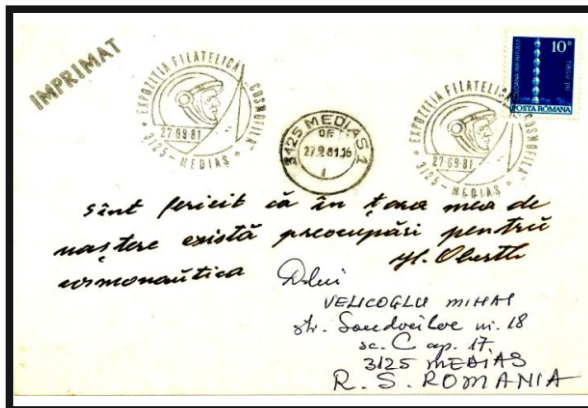 IMPRIMAT
EXPOZIȚIA FILATELICĂ „COSMOFILA"
27-09-81
3125-MEDIAȘ
3125 MEDIAS 1
27.9.81.16
EXPOZIȚIA FILATELICĂ „COSMOFILA"
27-09-81
3125-MEDIAȘ
10B
COLOANA INFINITULUI
TÂRGU JIU
POSTA ROMANA
sînt fericit că în țara mea de
naștere există preocupări pentru
cosmonautica
H. Oberth
Dlui
VELICOGLU MIHAI
str. nr. 18
sc. C ap. 17
3125 MEDIAS
R. S. ROMANIA